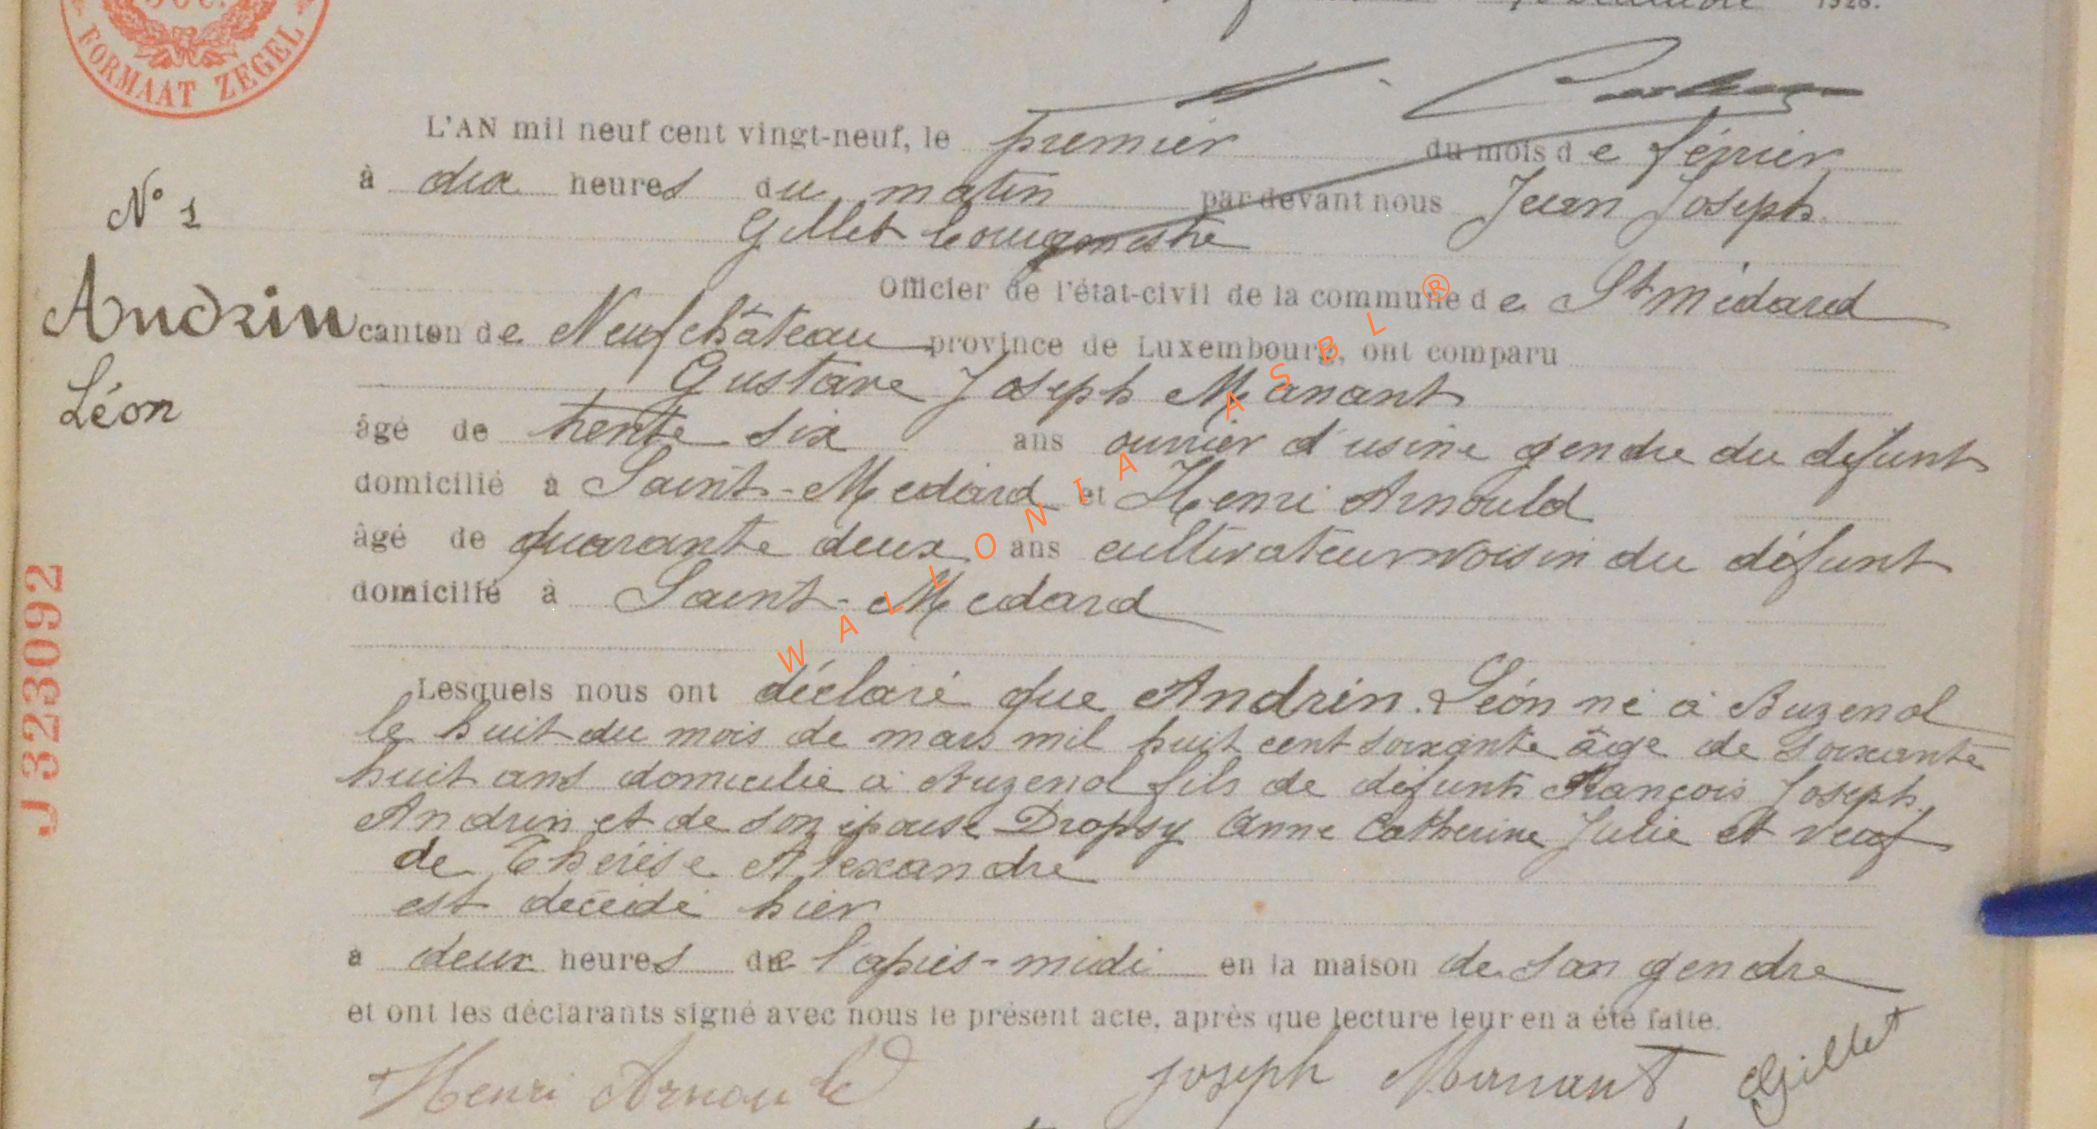 FORMAAT ZEGEL
1928.
L'AN mil neuf cent vingt-neuf, le premier du mois de février
à dix heures du matin par devant nous Jean Joseph
Gillet bourgmestre
Officier de l'état-civil de la commune de St Médard
N° 1
Andrin
Léon
canton de Neufchâteau province de Luxembourg, ont comparu
Gustave Joseph Manant
âgé de trente six ans ouvrier d'usine gendre du défunt
domicilié à Saint-Médard et Henri Arnould
âgé de quarante deux ans cultivateur voisin du défunt
domicilié à Saint-Médard
Lesquels nous ont déclaré que Andrin Léon né à Buzenol
le huit du mois de mars mil huit cent soixante âgé de soixante
huit ans domicilié à Buzenol fils de défunts François Joseph
Andrin et de son épouse Dropsy Anne Catherine Julie et veuf
de Thérèse Alexandre
est décédé hier
à deux heures de l'après-midi en la maison de son gendre
et ont les déclarants signé avec nous le présent acte, après que lecture leur en a été faite.
Henri Arnould Joseph Manant Gillet
J 323092
WALLONIA ASBL ®